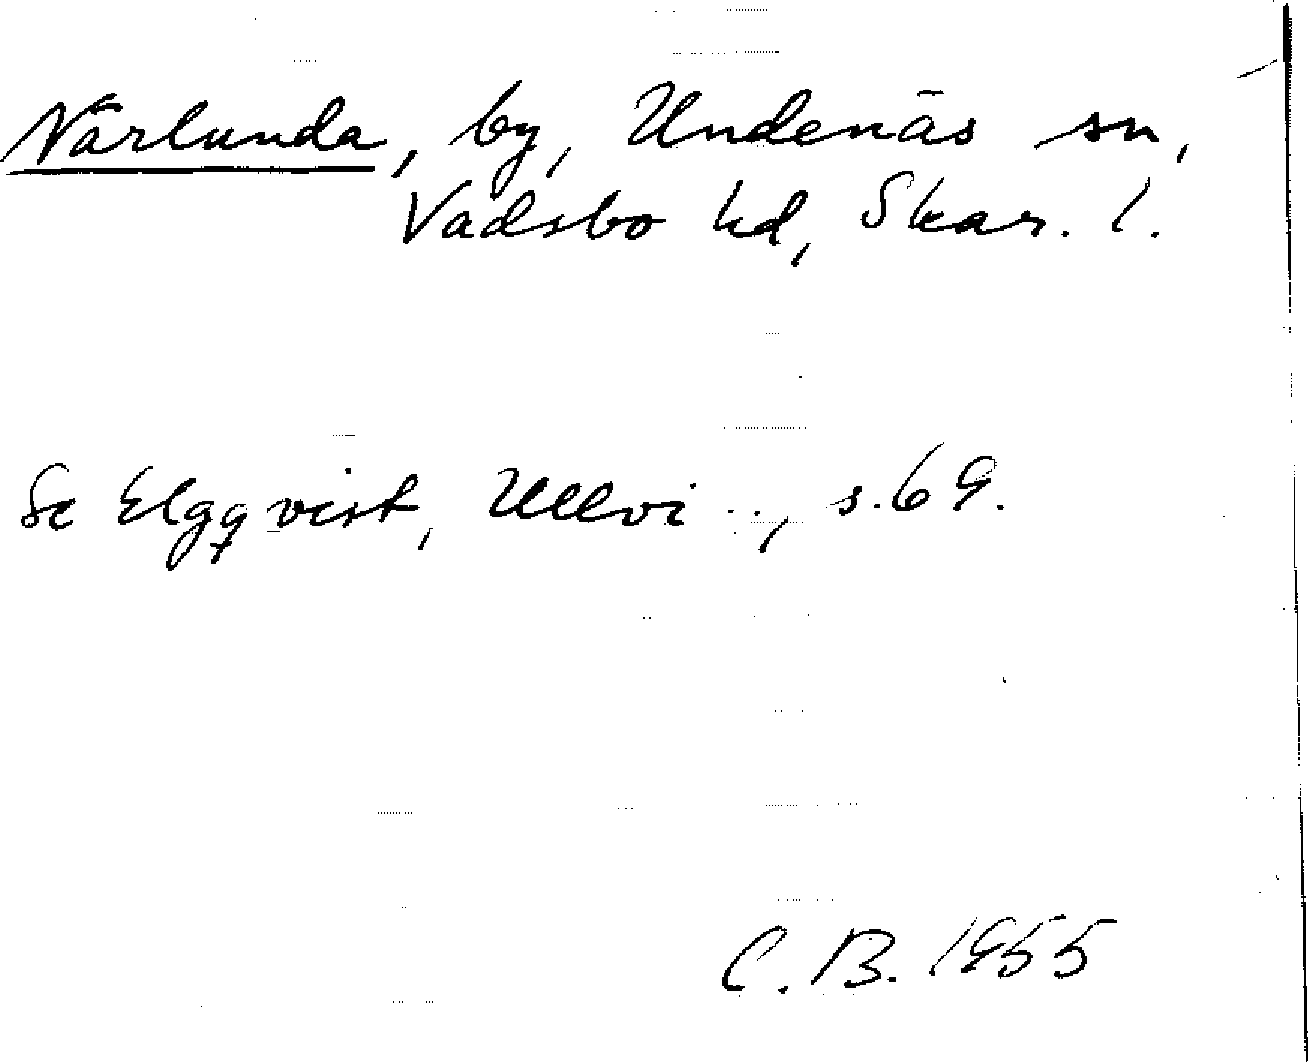 Närlunda, by, Undenäs sn,
Vadsbo hd, Skar. l.
Se Elgqvist, Ullvi .., s. 69.
C. B. 1955